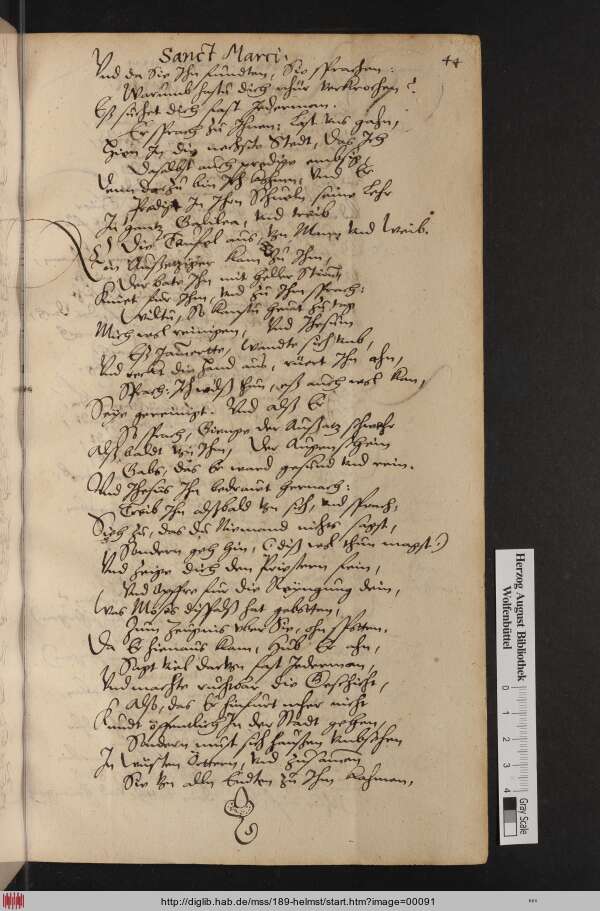 Sanct Marci.
44
Vnd da Sie Ihn fundten, Sie sprachen:
Warumb hastu dich verkrochen?
Eß suchet dich fast Jederman.
Er sprach zu Ihnen: Last vns gahn,
Hien In die nechste Stedt, Das Ich
Daselbst auch predige
Denn darzu bin Ich kohmen, Vnd Er
Predigt In Ihrn Schueln seine Lehr
In gantz Galilea, vnd treib
Die Teufel aus von Mann vnd Weib.
Ein Außetziger kam zu Ihm,
Der bate Ihn mit heller Stimm,
Kniet für Ihm, Vnd zu Ihm sprach:
Wiltu, So kanstu heut zu tag
Mich wol reinigen, Vnd Jhesum
Eß Jammerte, wandte sich vmb,
Vnd reckt die Hand aus, rüert Ihn ahn,
Sprach: Ich wilß thun, eß auch wol kan,
Seye gereinigt. Vnd alß Er
So sprach, Gienge der Außatz schwehr
Alßbaldt von Ihm, Der Augenschein
Gabs, das Er ward gesund vnd rein.
Vnd Jhesus Ihn bedrawt hernach:
Treib Ihn alßbald von sich, vnd sprach,
Sieh zu, das du Niemand nichts sagst,
Sondern geh hin, (diß wol thun magst)
Vnd zeige dich den Priestern fein,
Vnd opffre für die Reingung dein,
Was Moses dißfalß hat gebotten,
Zum Zeugnis vber Sie, ohn spotten.
Da Er hienaus kam, Hub Er ahn,
Sagt viel darvon fast Jederman,
Vnd machte ruchtbar die Geschicht,
Alß, das Er hinfurt mher nicht
Kundt öffentlich In der Stadt gehen,
Sondern must sich haußen vmbsehen
In wüsten Örttern, Vnd zusamen
Sie von alln Endten zu Ihm kahmen,
Herzog August Bibliothek
Wolfenbüttel
0 1 2 3 4
Gray Scale
http://diglib.hab.de/mss/189-helmst/start.htm?image=00091